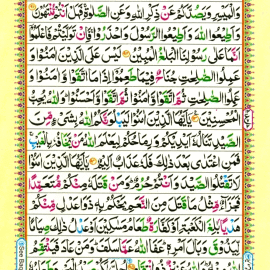 وَالْمَيْسِرِ وَيَصُدَّكُمْ عَنْ ذِكْرِ اللّٰهِ وَعَنِ الصَّلٰوةِ فَهَلْ اَنْتُمْ مُّنْتَهُوْنَ
وَاَطِيْعُوا اللّٰهَ وَاَطِيْعُوا الرَّسُوْلَ وَاحْذَرُوْا فَاِنْ تَوَلَّيْتُمْ فَاعْلَمُوْٓا
اَنَّمَا عَلٰى رَسُوْلِنَا الْبَلٰغُ الْمُبِيْنُ لَيْسَ عَلَى الَّذِيْنَ اٰمَنُوْا وَ
عَمِلُوا الصّٰلِحٰتِ جُنَاحٌ فِيْمَا طَعِمُوْٓا اِذَا مَا اتَّقَوْا وَّاٰمَنُوْا وَ
عَمِلُوا الصّٰلِحٰتِ ثُمَّ اتَّقَوْا وَّاٰمَنُوْا ثُمَّ اتَّقَوْا وَّاَحْسَنُوْا وَاللّٰهُ يُحِبُّ
الْمُحْسِنِيْنَ يٰٓاَيُّهَا الَّذِيْنَ اٰمَنُوْا لَيَبْلُوَنَّكُمُ اللّٰهُ بِشَيْءٍ مِّنَ
الصَّيْدِ تَنَالُهٗٓ اَيْدِيْكُمْ وَرِمَاحُكُمْ لِيَعْلَمَ اللّٰهُ مَنْ يَّخَافُهٗ بِالْغَيْبِ
فَمَنِ اعْتَدٰى بَعْدَ ذٰلِكَ فَلَهٗ عَذَابٌ اَلِيْمٌ يٰٓاَيُّهَا الَّذِيْنَ اٰمَنُوْا
لَا تَقْتُلُوا الصَّيْدَ وَاَنْتُمْ حُرُمٌ وَمَنْ قَتَلَهٗ مِنْكُمْ مُّتَعَمِّدًا
فَجَزَآءٌ مِّثْلُ مَا قَتَلَ مِنَ النَّعَمِ يَحْكُمُ بِهٖ ذَوَا عَدْلٍ مِّنْكُمْ
هَدْيًۢا بٰلِغَ الْكَعْبَةِ اَوْ كَفَّارَةٌ طَعَامُ مَسٰكِيْنَ اَوْ عَدْلُ ذٰلِكَ صِيَامًا
لِّيَذُوْقَ وَبَالَ اَمْرِهٖ عَفَا اللّٰهُ عَمَّا سَلَفَ وَمَنْ عَادَ فَيَنْتَقِمُ
اللّٰهُ مِنْهُ وَاللّٰهُ عَزِيْزٌ ذُو انْتِقَامٍ